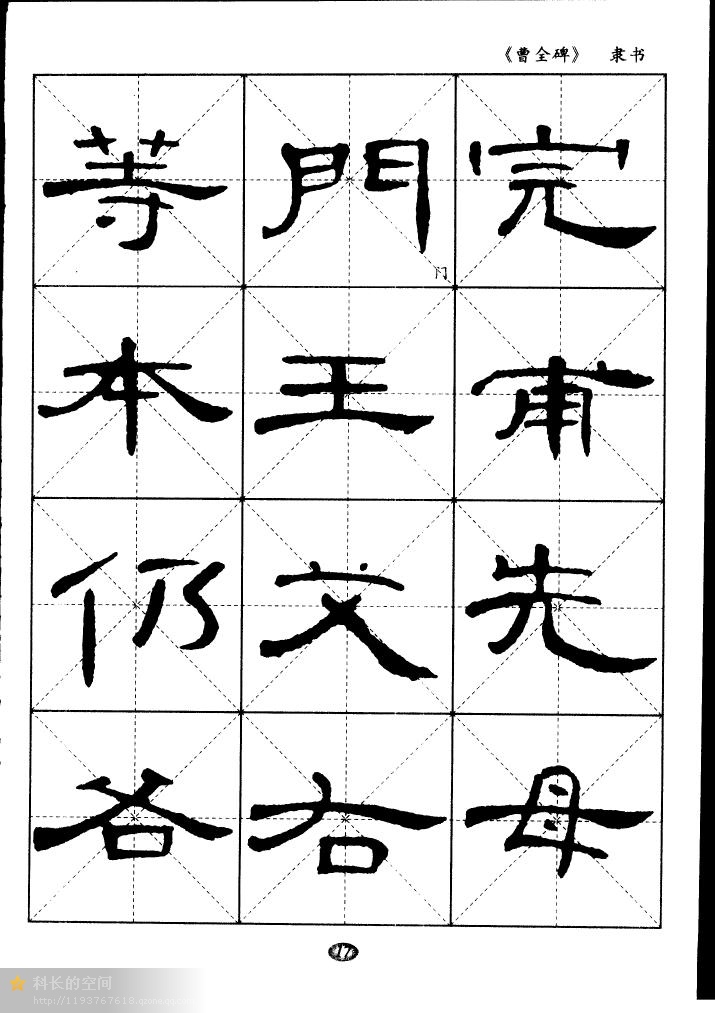 《曹全碑》 隶书
完甫先母
門王文右
门
等本仍各
17
科长的空间